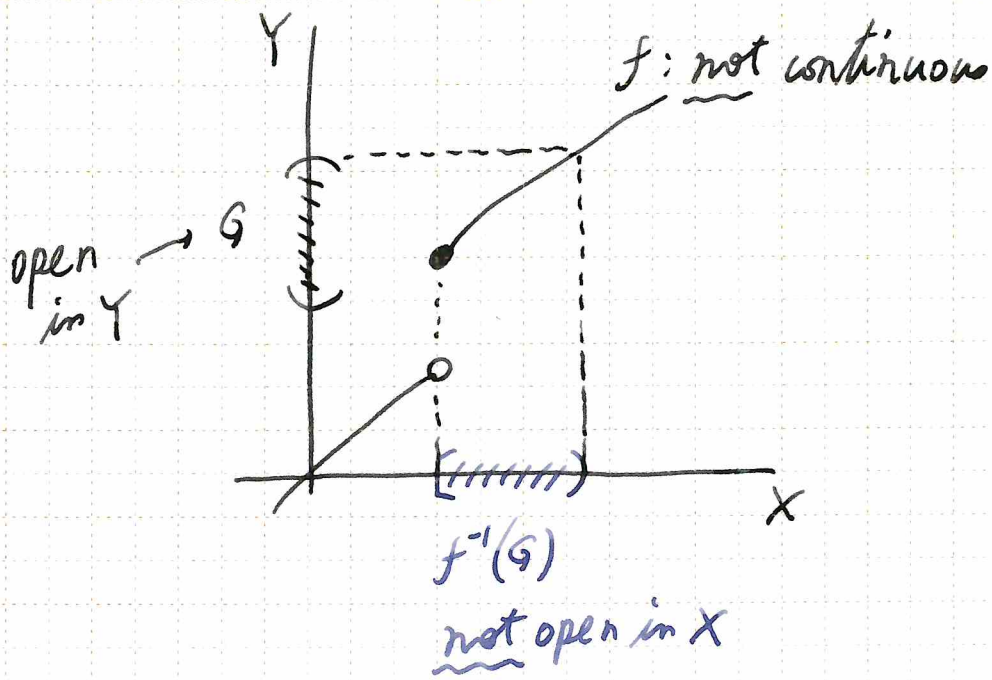 Y
f: not continuous
G
open
in Y
X
f⁻¹(G)
not open in X